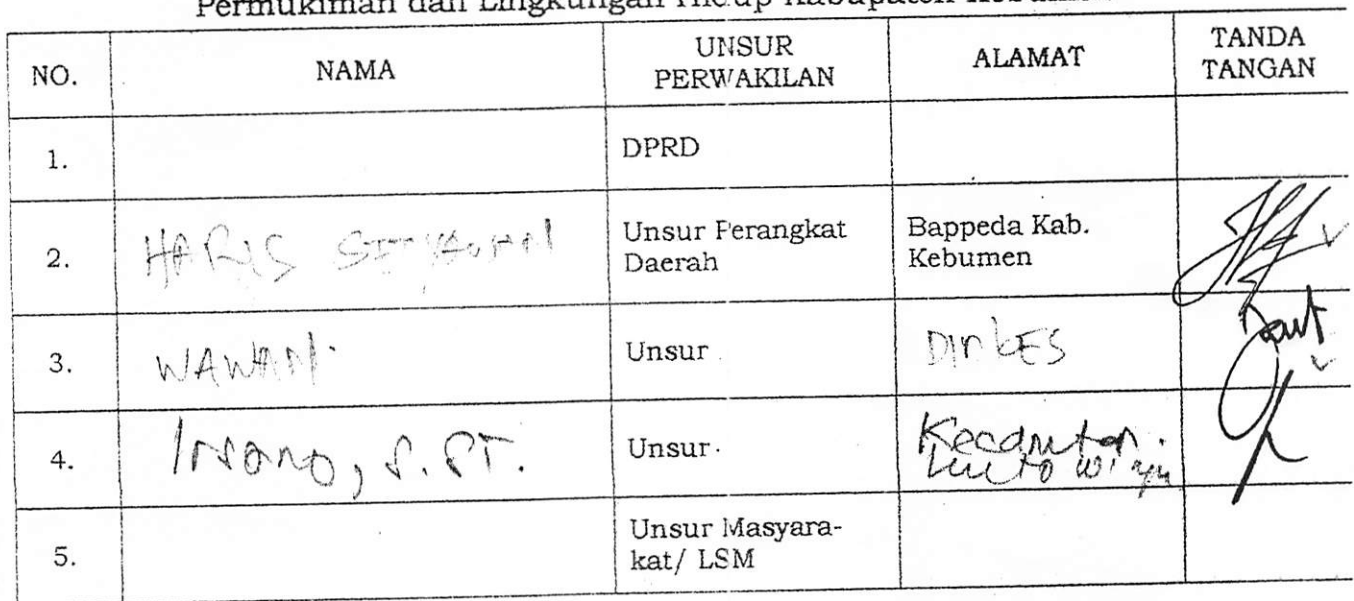 Permukiman dan Lingkungan Hidup Kabupaten
NO. NAMA UNSUR PERWAKILAN ALAMAT TANDA TANGAN
1. DPRD
2. HARIS Unsur Perangkat Daerah Bappeda Kab. Kebumen
3. WAWAN. Unsur DINKES
4. S.PT. Unsur Kecamatan
5. Unsur Masyara-
kat/ LSM